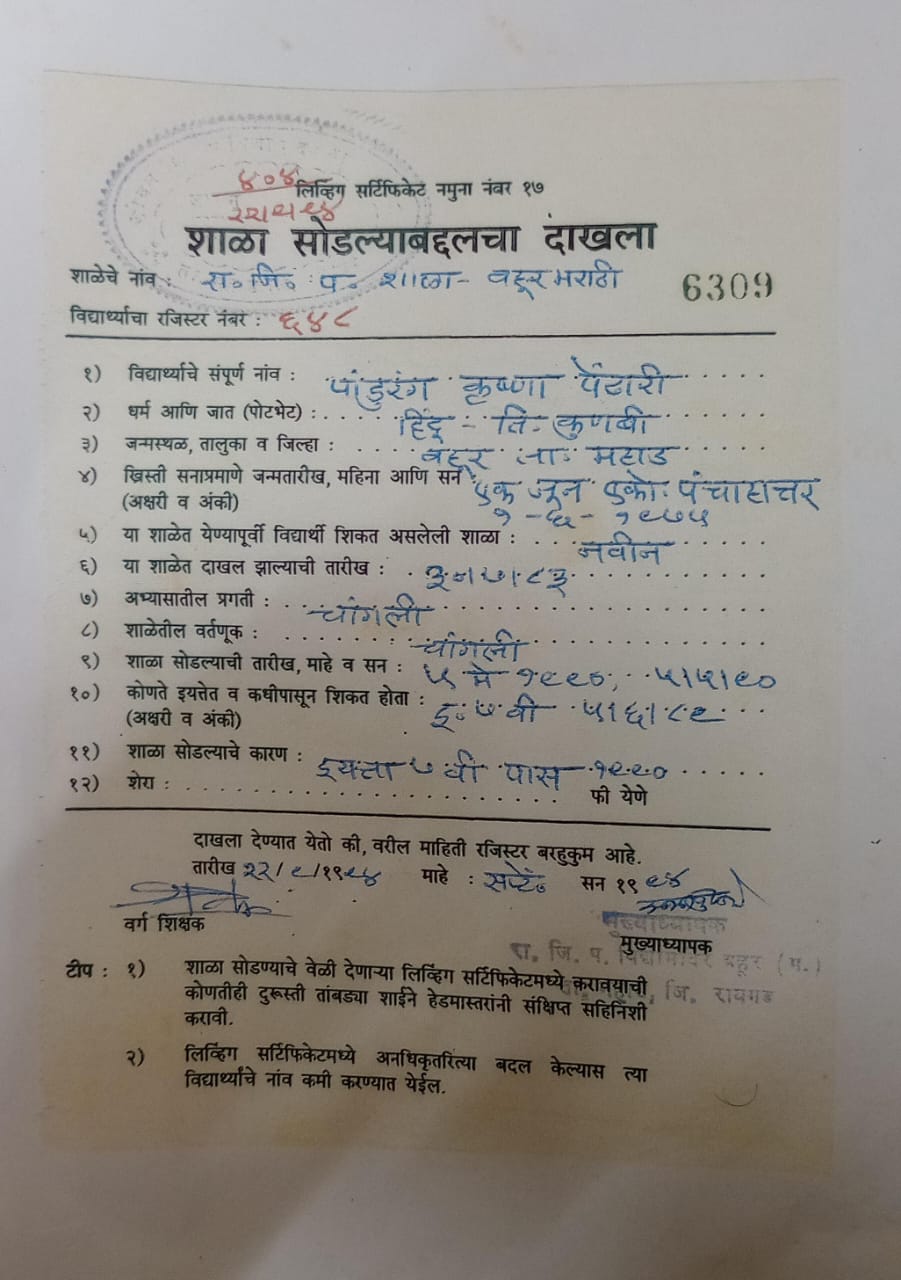 ४०४
लिव्हिंग सर्टिफिकेट नमुना नंबर १७
शाळा सोडल्याबद्दलचा दाखला
शाळेचे नांव : रा. जि. प. शाळा - वहूर मराठी
6309
विद्यार्थ्याचा रजिस्टर नंबर : ६४८
१) विद्यार्थ्याचे संपूर्ण नांव : पांडुरंग कृष्णा पेंढारी
२) धर्म आणि जात (पोटभेट) : हिंदू - ति. कुणबी
३) जन्मस्थळ, तालुका व जिल्हा : वहूर ता. महाड
४) ख्रिस्ती सनाप्रमाणे जन्मतारीख, महिना आणि सन एक जून एको. पंचाहात्तर
(अक्षरी व अंकी) १ - ६ - १९७५
५) या शाळेत येण्यापूर्वी विद्यार्थी शिकत असलेली शाळा : नवीन
६) या शाळेत दाखल झाल्याची तारीख :
७) अभ्यासातील प्रगती : चांगली
८) शाळेतील वर्तणूक : चांगली
९) शाळा सोडल्याची तारीख, माहे व सन : ५ मे १९९०, ५।५।९०
१०) कोणते इयत्तेत व कधीपासून शिकत होता : इ. ७ वी ५।६।८९
(अक्षरी व अंकी)
११) शाळा सोडल्याचे कारण : इयत्ता ७ वी पास १९९०
१२) शेरा : फी येणे
दाखला देण्यात येतो की, वरील माहिती रजिस्टर बरहुकुम आहे.
तारीख २२/९/१९९४ माहे : सप्टें. सन १९ ९४
वर्ग शिक्षक
मुख्याध्यापक
मुख्याध्यापक
रा. जि. प. विद्यामंदिर वहूर (म.)
जि. रायगड
टीप : १) शाळा सोडण्याचे वेळी देणाऱ्या लिव्हिंग सर्टिफिकेटमध्ये करावयाची
कोणतीही दुरूस्ती तांबड्या शाईने हेडमास्तरांनी संक्षिप्त सहिनिशी
करावी.
२) लिव्हिंग सर्टिफिकेटमध्ये अनधिकृतरित्या बदल केल्यास त्या
विद्यार्थ्यांचे नांव कमी करण्यात येईल.